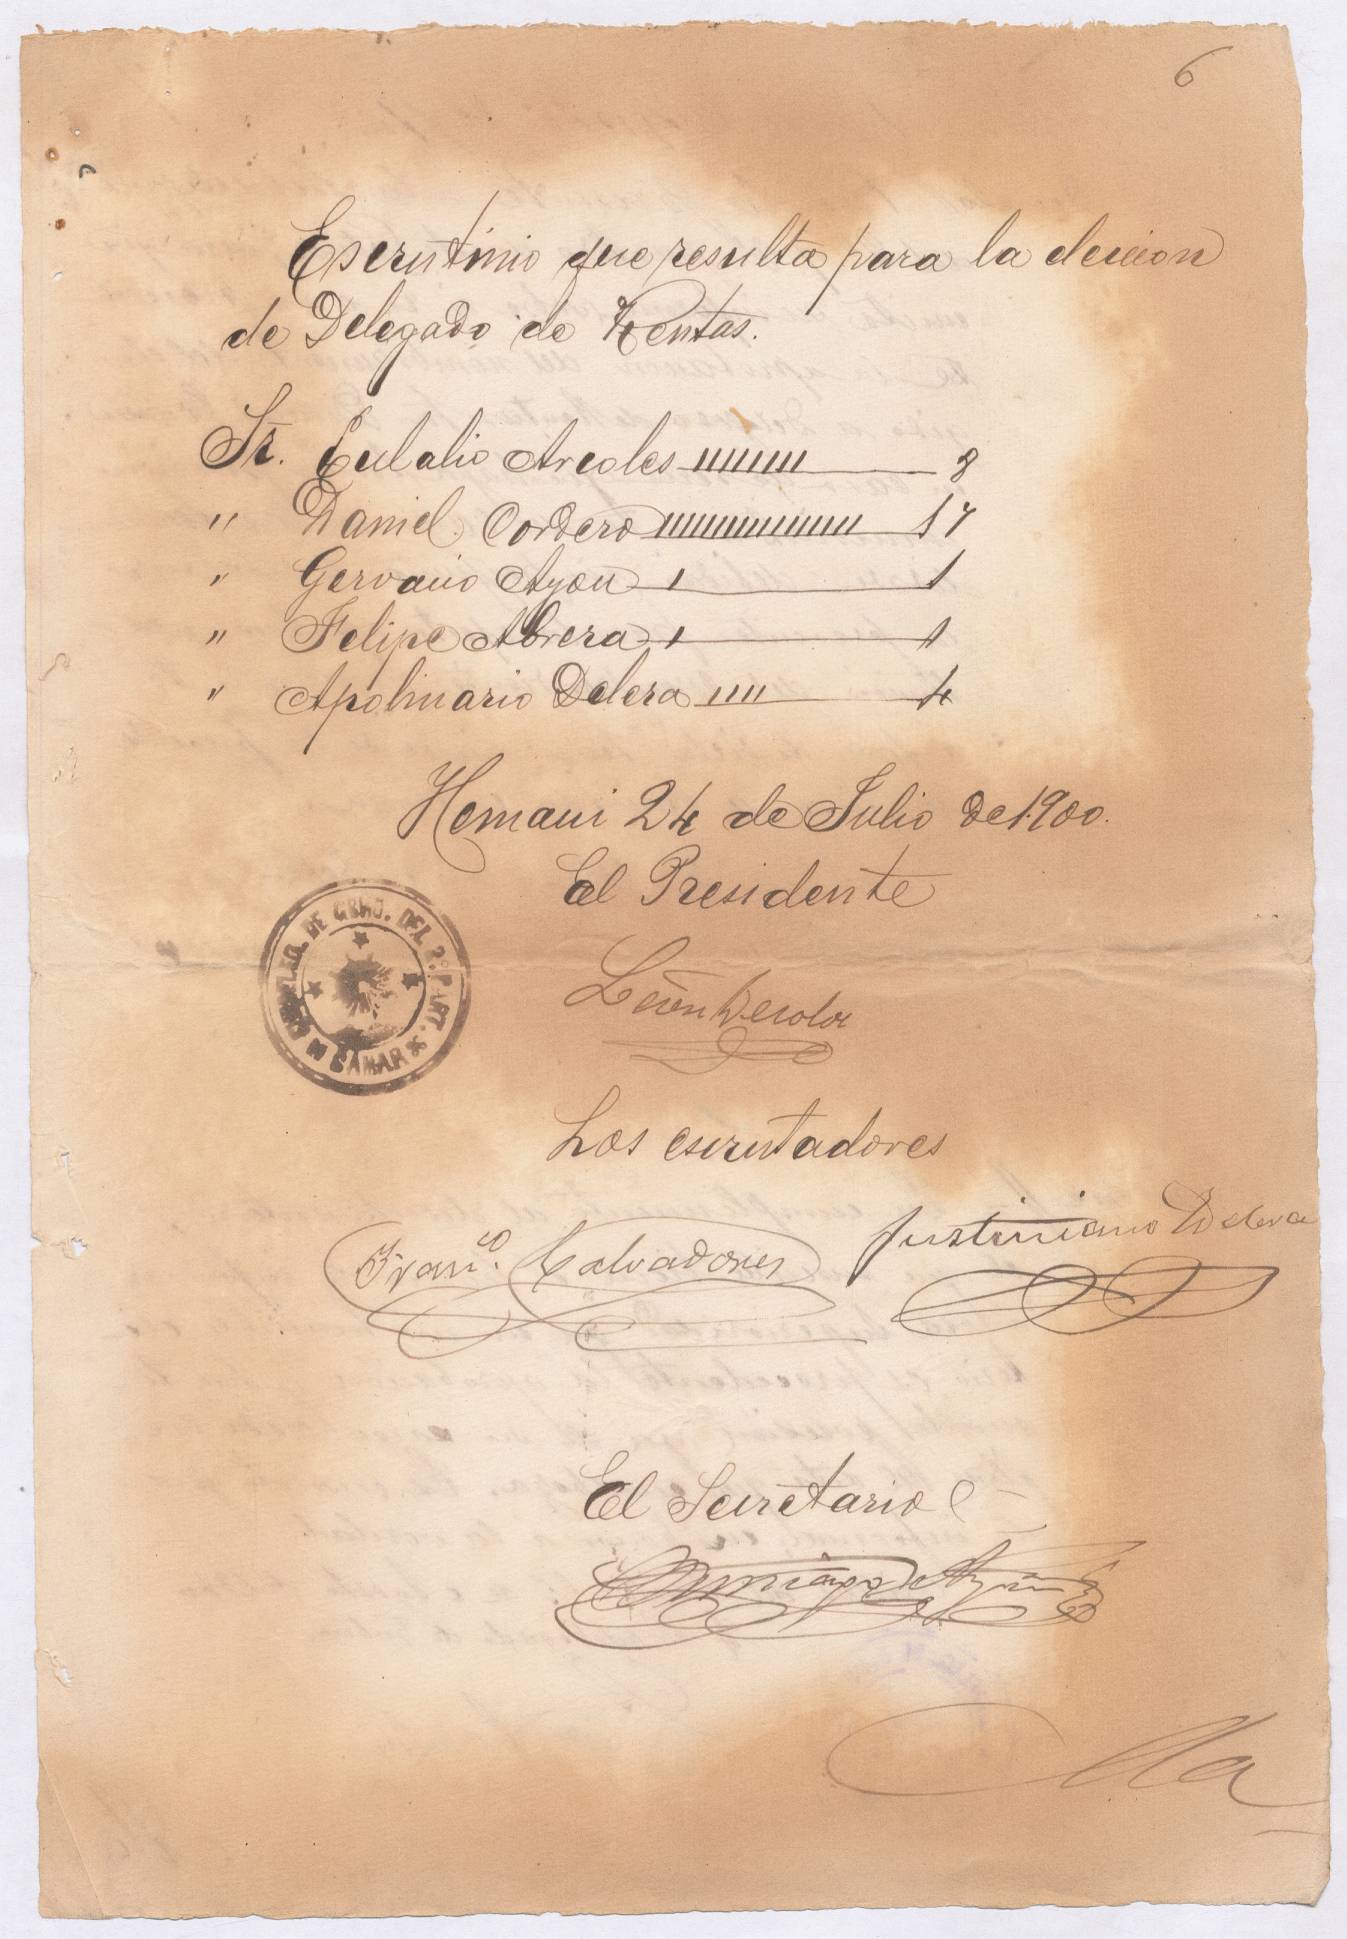 6
Escrutinio que resulta para la eleccion
de Delegado de Rentas.
Sr. Eulalio Areoles IIIIIIII 8
" Daniel Cordero IIIIIIIIIIIIIIIII 17
" Gervacio Ayon I 1
" Felipe Abrera I 1
" Apolinario Delera IIII 4
Hernani 24 de Julio de 1900.
El Presidente
DE GBNO. DEL 2.º PART. DE SAMAR
León
Los escrutadores
Franco. Calvadores
Justiniano Delera
El Secretario